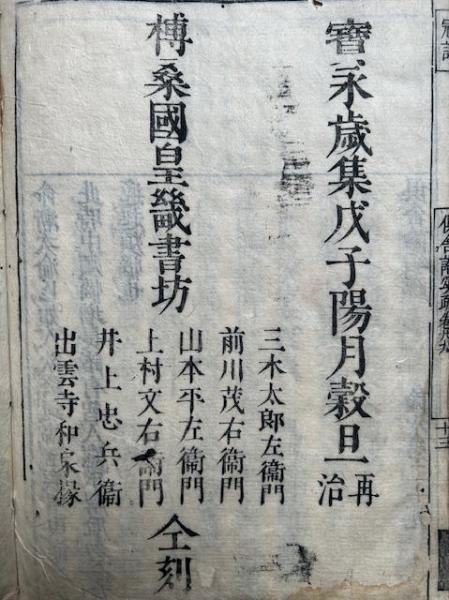 寶永歲集戊子陽月穀旦再治
榑桑國皇畿書坊
三木太郎左衞門
前川茂右衞門
山本平左衞門
上村文右衞門
井上忠兵衞
出雲寺和泉掾
仝刻